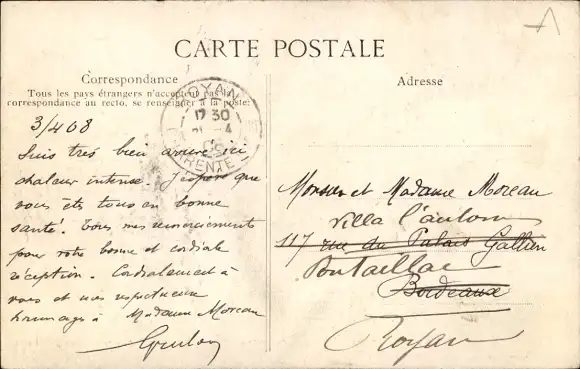 CARTE POSTALE
Correspondance
Tous les pays étrangers n'acceptent pas la
correspondance au recto, se renseigner à la poste.
Adresse
ROYAN
17 30
4
3/4 08
Suis très bien arrivé ici
chaleur intense. J'espère que
vous êtes tous en bonne
santé. Tous mes remerciements
pour votre bonne et cordiale
réception. Cordialement à
vous et mes respectueux
hommages à Madame Moreau
Monsieur et Madame Moreau
villa
117 rue du Palais Gallien
Pontaillac
Bordeaux
Royan